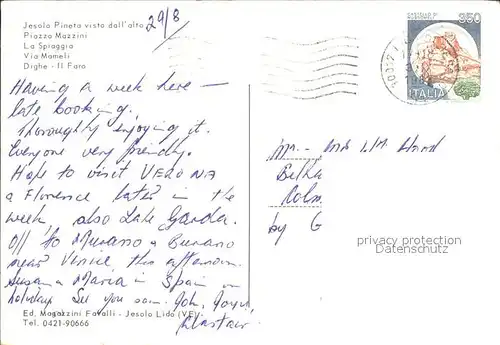 Jesolo Pineta visto dall'alto
Piazza Mazzini
La Spiaggia
Via Mameli
Dighe - Il Faro
29/8
850
ITALIA
Having a week here —
late booking.
Thoroughly enjoying it.
Everyone very friendly.
Hope to visit VERONA
& Florence later in the
week, also Lake Garda.
Off to Murano & Burano
near Venice this afternoon.
Susan & Maria in Spain on
holiday. See you soon. John,
Alastair.
Mr. and
by G
privacy protection
Datenschutz
Ed. Magazzini Favalli - Jesolo Lido (VE)
Tel. 0421-90666